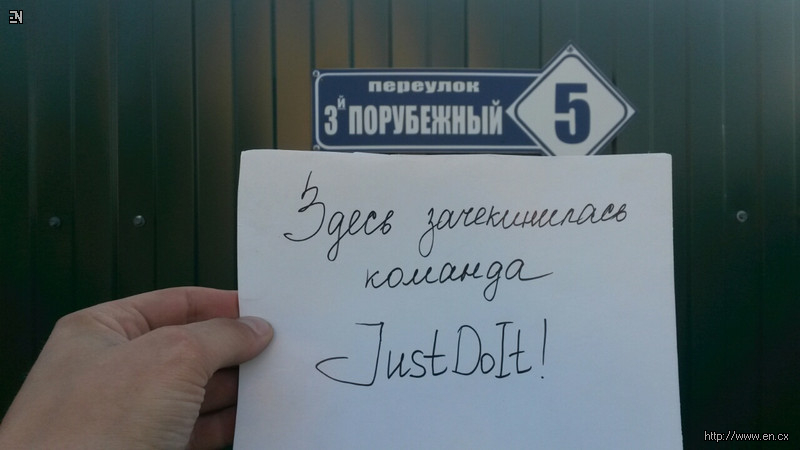 EN
переулок
3й ПОРУБЕЖНЫЙ
5
Здесь зачекинилась
команда
JustDoIt!
http://www.en.cx